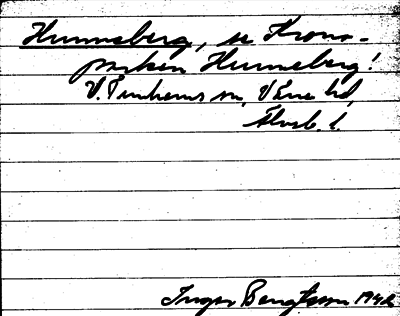 Hunneberg, se Krono-
parken Hunneberg!
V. Tunhems sn, Väne hd,
Älvsb. l.
Inger Bengtsson 1942